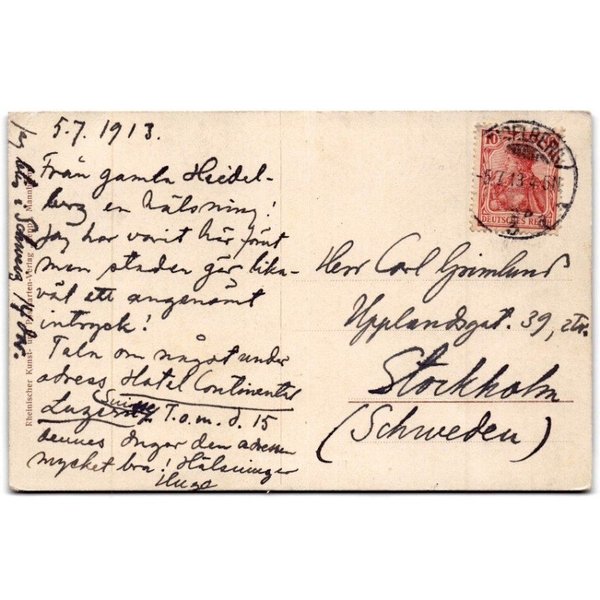 5.7. 1913.
Från gamla Heidel-
berg en hälsning!
Jag har varit här förut
men staden gör lika-
väl ett angenämt
intryck!
Tala om något under
adress Hotel Continental
Luzern Suisse T.o.m. d. 15
dennes duger den adressen
mycket bra! Hälsningar
Hugo
i Schweiz
Rheinischer Kunst- und
HEIDELBERG
5/7.13.4-5N
10
DEUTSCHES REICH
Herr Carl Grimlund
Upplandsgat. 39, 2tr.
Stockholm
(Schweden)